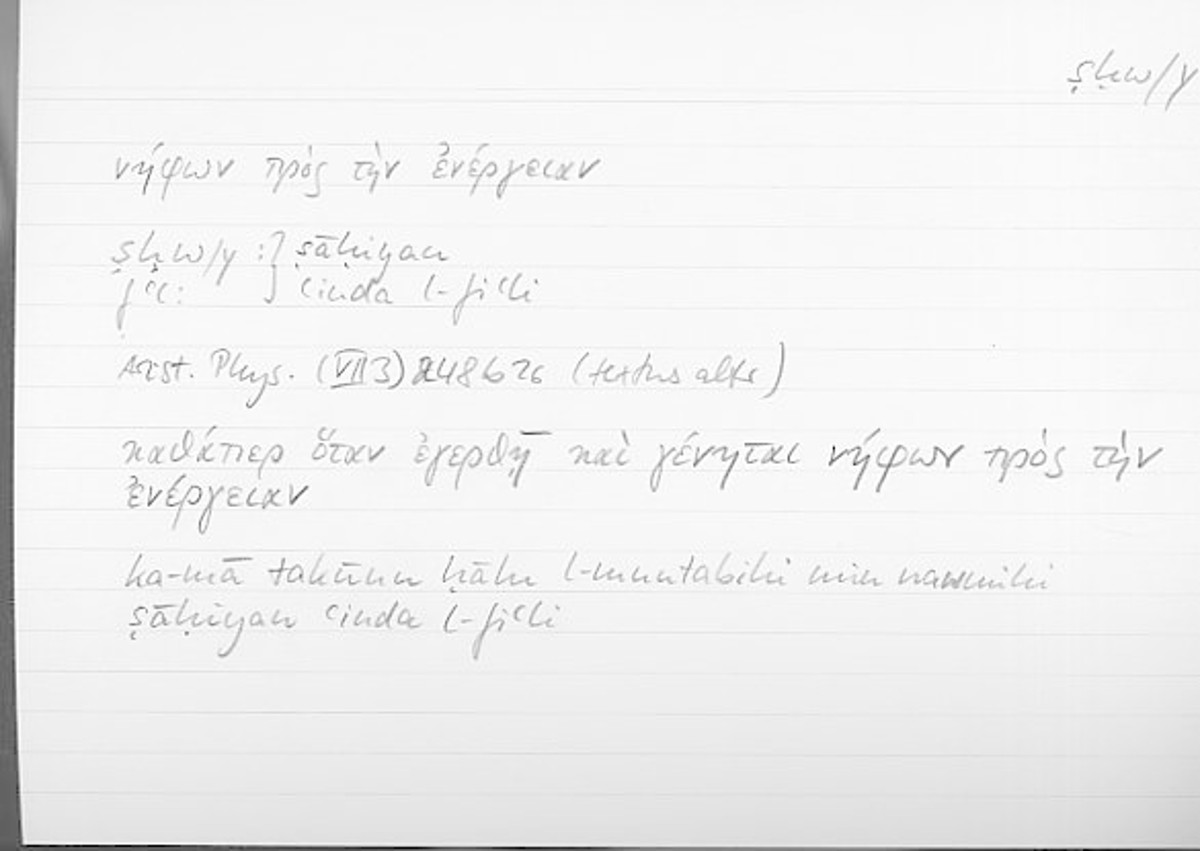 ṣḥw/y
νήφων πρὸς τὴν ἐνέργειαν
ṣḥw/y :} ṣāḥiyan
fʿl: } ʿinda l-fiʿli
Arist. Phys. (VII 3) 248b26 (textus alter)
καθάπερ ὅταν ἐγερθῇ καὶ γένηται νήφων πρὸς τὴν
ἐνέργειαν
ka-mā takūnu ḥālu l-muntabihi min nawmihi
ṣāḥiyan ʿinda l-fiʿli